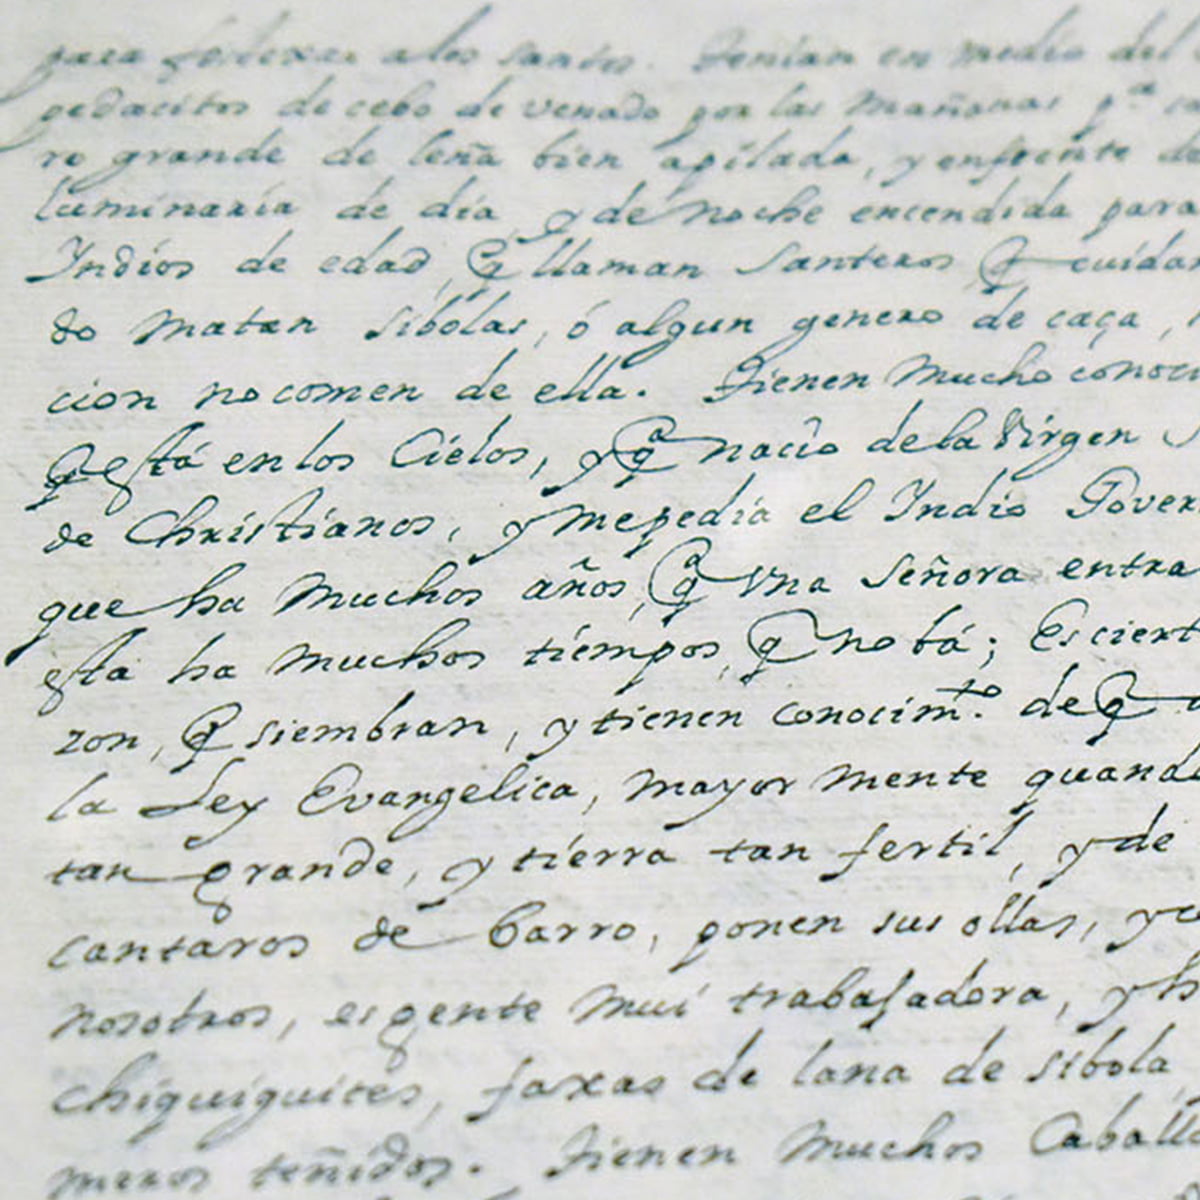 para festexar a los santos. Tenian en medio del
pedacitos de cebo de venado por las mañanas pª
ro grande de leña bien apilada, y enfrente de
luminaria de dia y de noche encendida para
Indios de edad, q̃ llaman Santeros q̃ cuidan
do matan sibolas, ó algun genero de caça,
cion no comen de ella. Tienen mucho conoci
q̃ está en los Cielos, y q̃ naciò de la Virgen
de Christianos, y me pedia el Indio Gover
que ha muchos años, q̃ vna Señora entra
esta ha muchos tiempos, q̃ no bá; Es ciert
zon, q̃ siembran, y tienen conocimto. de q̃
la Ley Evangelica, mayor mente quando
tan grande, y tierra tan fertil, y de
cantaros de barro, ponen sus ollas, y
nosotros, es gente mui trabajadora, y
chiquiguites, faxas de lana de sibola,
meros teñidos. Tienen muchos Caball